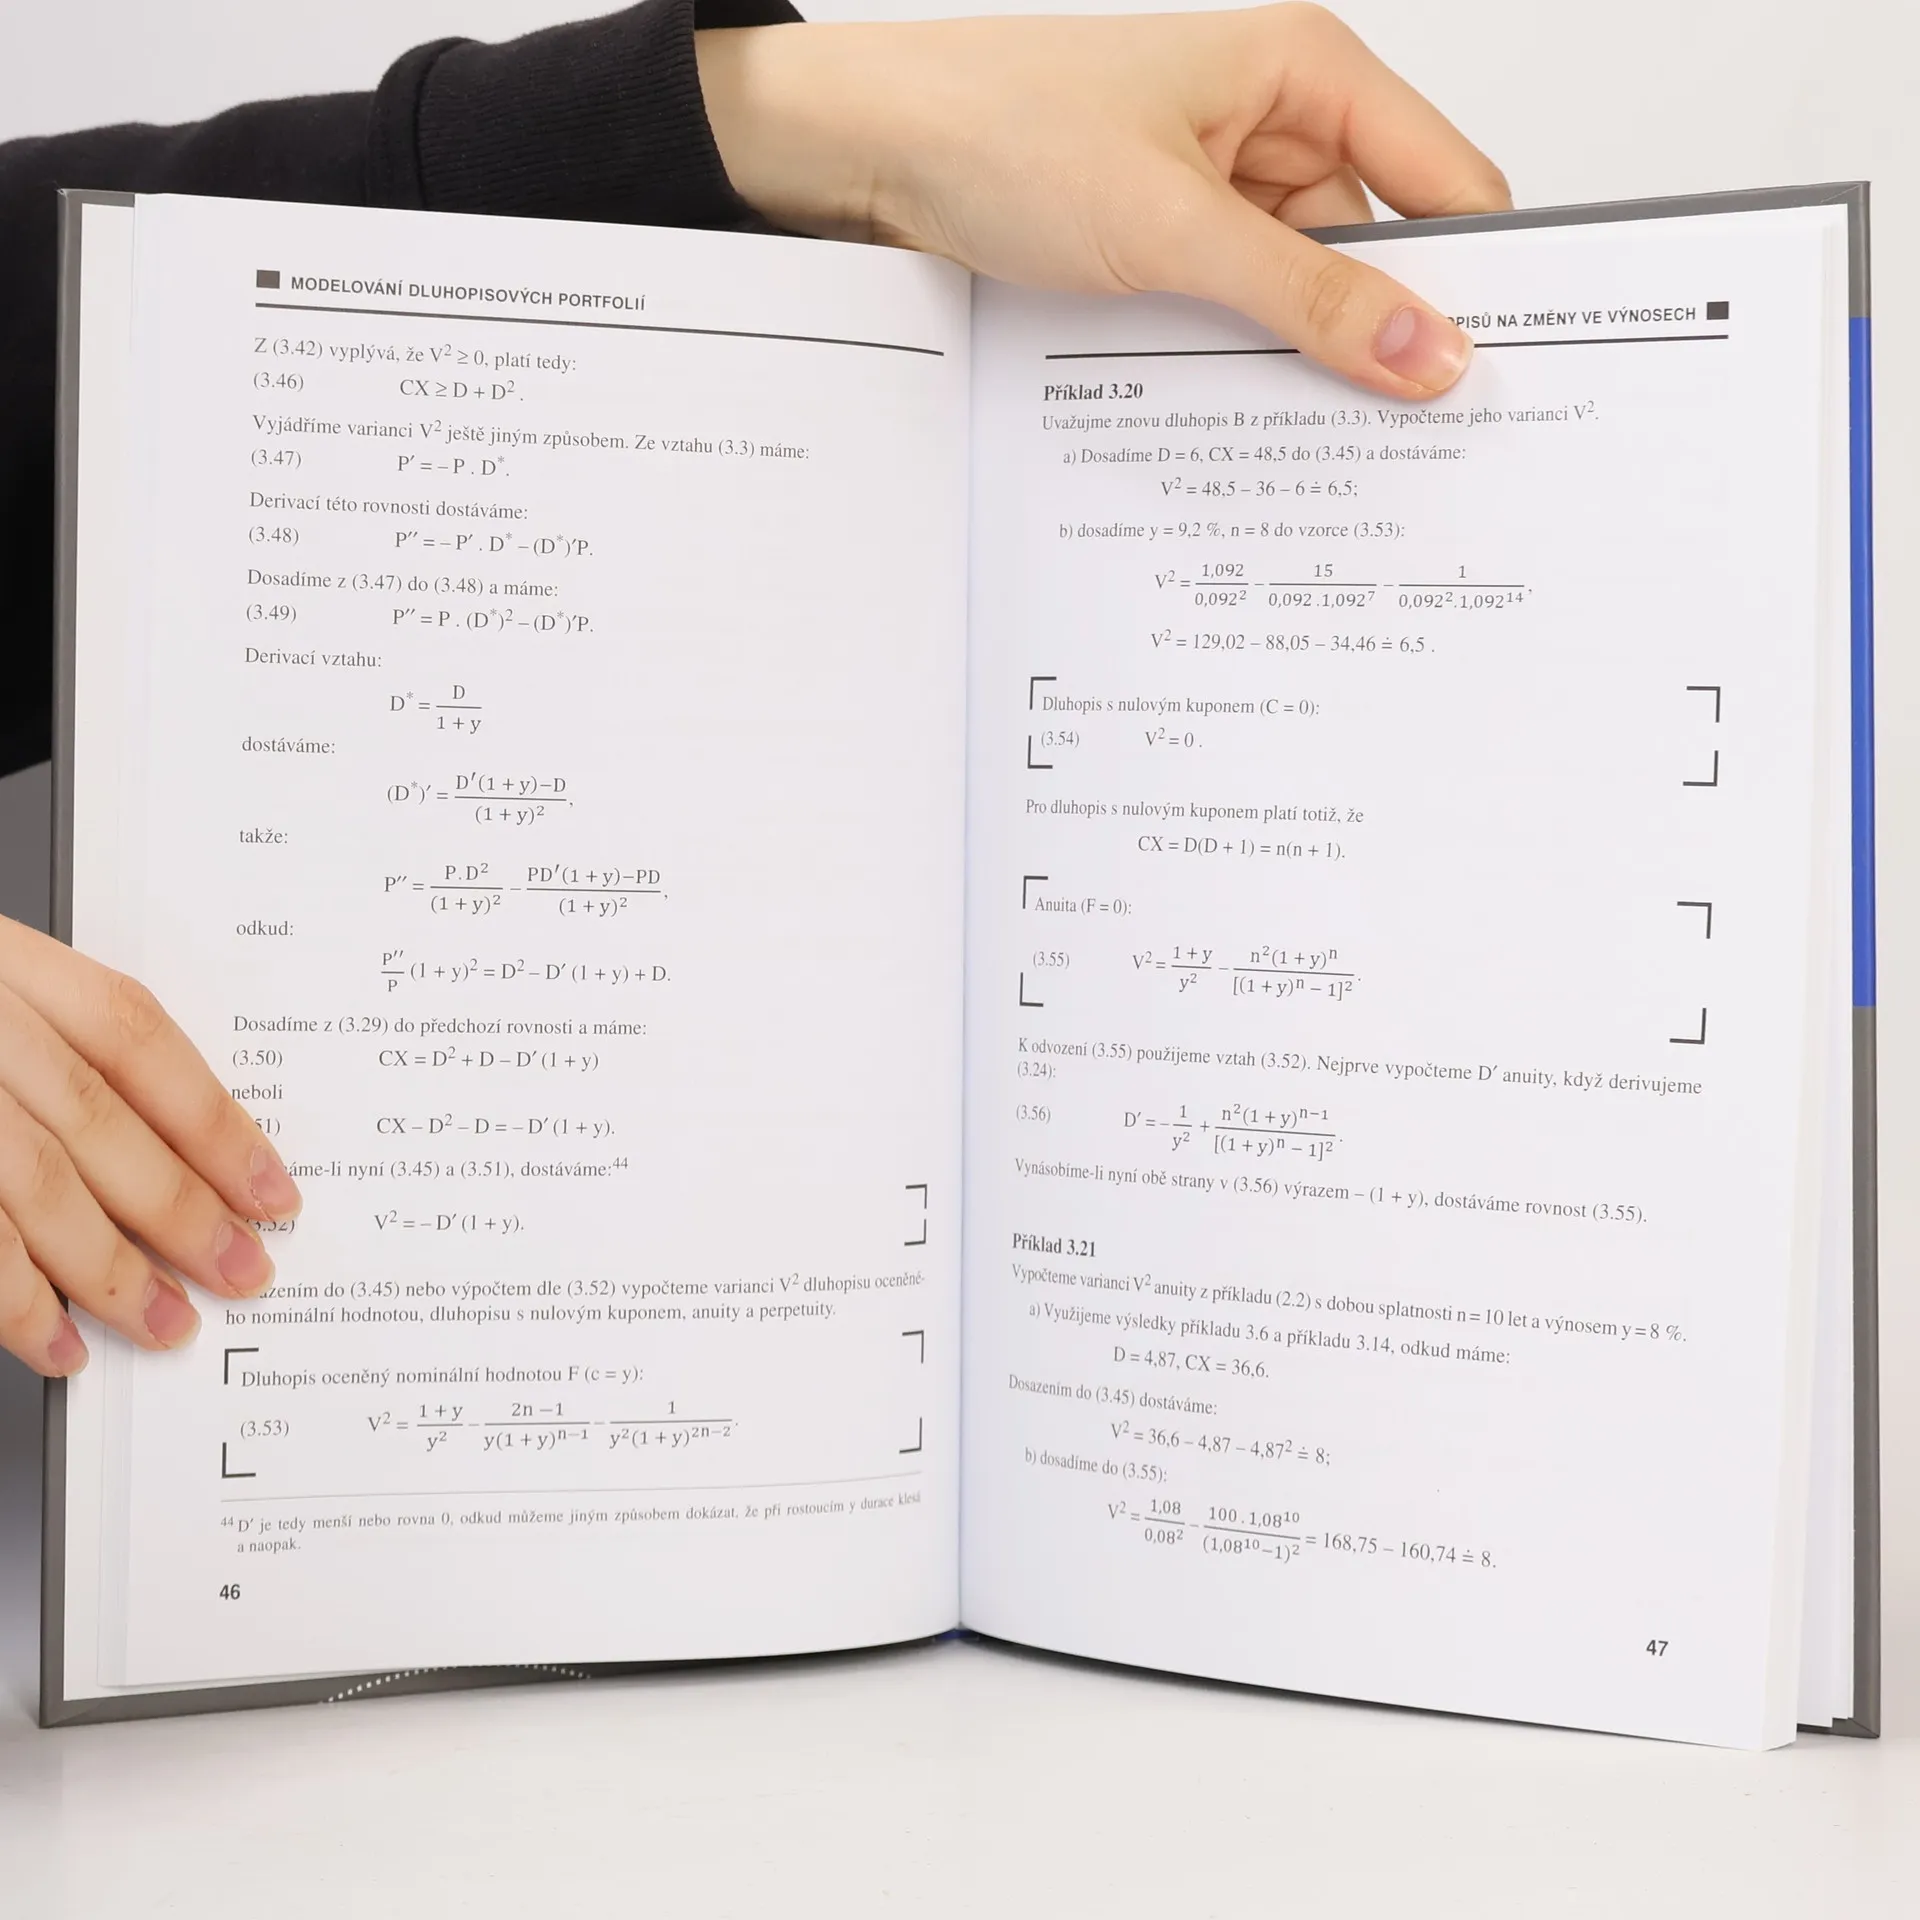 MODELOVÁNÍ DLUHOPISOVÝCH PORTFOLIÍ
Z (3.42) vyplývá, že V² ≥ 0, platí tedy:
(3.46) CX ≥ D + D².
Vyjádříme varianci V² ještě jiným způsobem. Ze vztahu (3.3) máme:
(3.47) P′ = – P . D*.
Derivací této rovnosti dostáváme:
(3.48) P″ = – P′ . D* – (D*)′P.
Dosadíme z (3.47) do (3.48) a máme:
(3.49) P″ = P . (D*)² – (D*)′P.
Derivací vztahu:
D* = D / (1 + y)
dostáváme:
(D*)′ = (D′(1 + y)–D) / (1 + y)²,
takže:
P″ = P.D² / (1 + y)² – (PD′(1 + y)–PD) / (1 + y)²,
odkud:
P″/P (1 + y)² = D² – D′ (1 + y) + D.
Dosadíme z (3.29) do předchozí rovnosti a máme:
(3.50) CX = D² + D – D′ (1 + y)
neboli
51) CX – D² – D = – D′ (1 + y).
áme-li nyní (3.45) a (3.51), dostáváme:⁴⁴
(3.52) V² = – D′ (1 + y).
azením do (3.45) nebo výpočtem dle (3.52) vypočteme varianci V² dluhopisu oceněné-
ho nominální hodnotou, dluhopisu s nulovým kuponem, anuity a perpetuity.
Dluhopis oceněný nominální hodnotou F (c = y):
(3.53) V² = (1 + y) / y² – (2n –1) / y(1 + y)ⁿ⁻¹ – 1 / y²(1 + y)²ⁿ⁻².
⁴⁴ D′ je tedy menší nebo rovna 0, odkud můžeme jiným způsobem dokázat, že při rostoucím y durace klesá
a naopak.
46
OPISŮ NA ZMĚNY VE VÝNOSECH
Příklad 3.20
Uvažujme znovu dluhopis B z příkladu (3.3). Vypočteme jeho varianci V².
a) Dosadíme D = 6, CX = 48,5 do (3.45) a dostáváme:
V² = 48,5 – 36 – 6 ≐ 6,5;
b) dosadíme y = 9,2 %, n = 8 do vzorce (3.53):
V² = 1,092 / 0,092² – 15 / 0,092 .1,092⁷ – 1 / 0,092².1,092¹⁴,
V² = 129,02 – 88,05 – 34,46 ≐ 6,5 .
Dluhopis s nulovým kuponem (C = 0):
(3.54) V² = 0 .
Pro dluhopis s nulovým kuponem platí totiž, že
CX = D(D + 1) = n(n + 1).
Anuita (F = 0):
(3.55) V² = (1 + y) / y² – n²(1 + y)ⁿ / [(1 + y)ⁿ – 1]².
K odvození (3.55) použijeme vztah (3.52). Nejprve vypočteme D′ anuity, když derivujeme
(3.24):
(3.56) D′ = – 1 / y² + n²(1 + y)ⁿ⁻¹ / [(1 + y)ⁿ – 1]².
Vynásobíme-li nyní obě strany v (3.56) výrazem – (1 + y), dostáváme rovnost (3.55).
Příklad 3.21
Vypočteme varianci V² anuity z příkladu (2.2) s dobou splatnosti n = 10 let a výnosem y = 8 %.
a) Využijeme výsledky příkladu 3.6 a příkladu 3.14, odkud máme:
D = 4,87, CX = 36,6.
Dosazením do (3.45) dostáváme:
V² = 36,6 – 4,87 – 4,87² ≐ 8;
b) dosadíme do (3.55):
V² = 1,08 / 0,08² – 100 . 1,08¹⁰ / (1,08¹⁰–1)² = 168,75 – 160,74 ≐ 8.
47